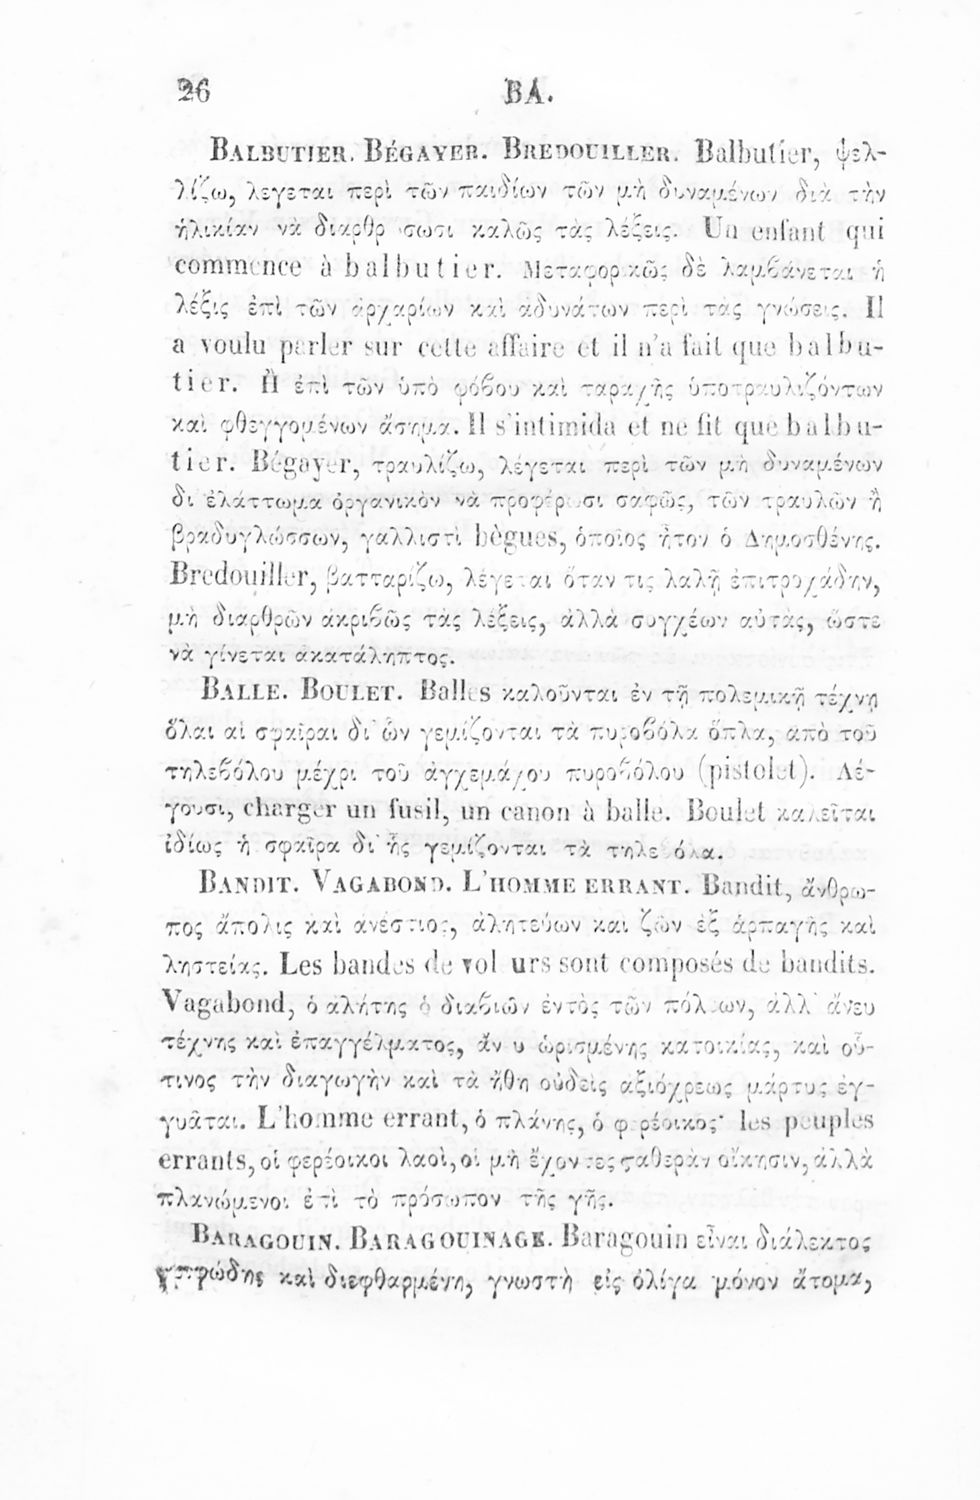 26 BA.
BALBUTIER. BÉGAYER. BREDOUILLER. Balbutier, ψελ-
λίζω, λεγεται περὶ τῶν παιδίων τῶν μὴ δυναμένων διὰ τὴν
ἡλικίαν νὰ διαρθρώσωσι καλῶς τὰς λέξεις. Un enfant qui
commence à balbutier. Μεταφορικῶς δὲ λαμβάνεται ἡ
λέξις ἐπὶ τῶν ἀρχαρίων καὶ ἀδυνάτων περὶ τὰς γνώσεις. Il
a voulu parler sur cette affaire et il n'a fait que balbu-
tier. Ἢ ἐπὶ τῶν ὑπὸ φόβου καὶ ταραχῆς ὑποτραυλιζόντων
καὶ φθεγγομένων ἄσημα. Il s'intimida et ne fit que balbu-
tier. Bégayer, τραυλίζω, λέγεται περὶ τῶν μὴ δυναμένων
δι' ἐλάττωμα ὀργανικὸν νὰ προφέρωσι σαφῶς, τῶν τραυλῶν ἢ
βραδυγλώσσων, γαλλιστὶ bègues, ὁποῖος ἦτον ὁ Δημοσθένης.
Bredouiller, βατταρίζω, λέγεται ὅταν τις λαλῇ ἐπιτροχάδην,
μὴ διαρθρῶν ἀκριβῶς τὰς λέξεις, ἀλλὰ συγχέων αὐτὰς, ὥστε
νὰ γίνεται ἀκατάληπτος.
BALLE. BOULET. Balles καλοῦνται ἐν τῇ πολεμικῇ τέχνῃ
ὅλαι αἱ σφαῖραι δι' ὧν γεμίζονται τὰ πυροβόλα ὅπλα, ἀπὸ τοῦ
τηλεβόλου μέχρι τοῦ ἀγχεμάχου πυροβόλου (pistolet). Λέ-
γουσι, charger un fusil, un canon à balle. Boulet καλεῖται
ἰδίως ἡ σφαῖρα δι' ἧς γεμίζονται τὰ τηλεβόλα.
BANDIT. VAGABOND. L'HOMME ERRANT. Bandit, ἄνθρω-
πος ἄπολις καὶ ἀνέστιος, ἀλητεύων και ζῶν ἐξ ἁρπαγῆς καὶ
ληστείας. Les bandes de voleurs sont composés de bandits.
Vagabond, ὁ ἀλήτης ὁ διαβιῶν ἐντὸς τῶν πόλεων, ἀλλ' ἄνευ
τέχνης καὶ ἐπαγγέλματος, ἄνευ ὡρισμένης κατοικίας, καὶ οὗ-
τινος τὴν διαγωγὴν καὶ τὰ ἤθη οὐδεὶς ἀξιόχρεως μάρτυς ἐγ-
γυᾶται. L'homme errant, ὁ πλάνης, ὁ φερέοικος· les peuples
errants, οἱ φερέοικοι λαοὶ, οἱ μὴ ἔχοντες σταθερὰν οἴκησιν, ἀλλὰ
πλανώμενοι ἐπὶ τὸ πρόσωπον τῆς γῆς.
BARAGOUIN. BARAGOUINAGE. Baragouin εἶναι διάλεκτος
καὶ διεφθαρμένη, γνωστὴ εἰς ὀλίγα μόνον ἄτομα,